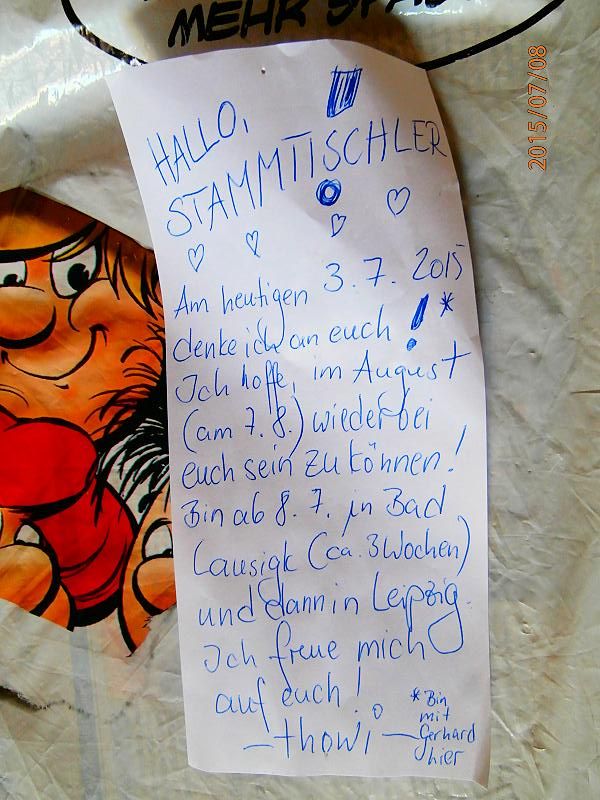 MEHR SPA
2015/07/08
HALLO,
STAMMTISCHLER!
Am heutigen 3.7.2015
denke ich an euch!*
Ich hoffe, im August
(am 7.8.) wieder bei
euch sein zu können!
Bin ab 8.7. in Bad
Lausigk (ca. 3 Wochen)
und dann in Leipzig.
Ich freue mich
auf euch!
– thowi –
*Bin
mit
Gerhard
hier